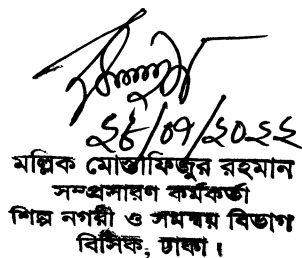 ২৮/০৭/২০২২
মল্লিক মোস্তাফিজুর রহমান
সম্প্রসারণ কর্মকর্তা
শিল্প নগরী ও সমন্বয় বিভাগ
বিসিক, ঢাকা।